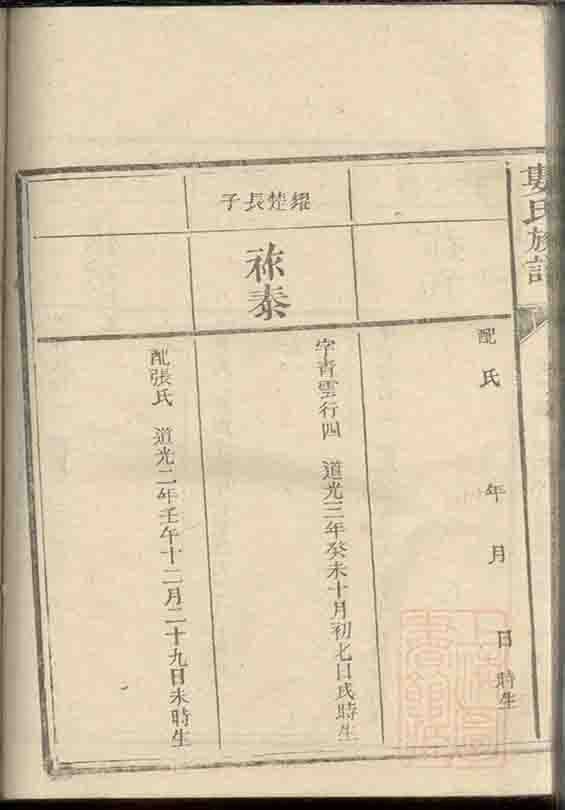 婁氏族譜
配 氏 年 月 日 時生
繼楚長子
祢泰
字青雲行四 道光三年癸未十月初七日戌時生
配張氏 道光二年壬午十二月二十九日未時生